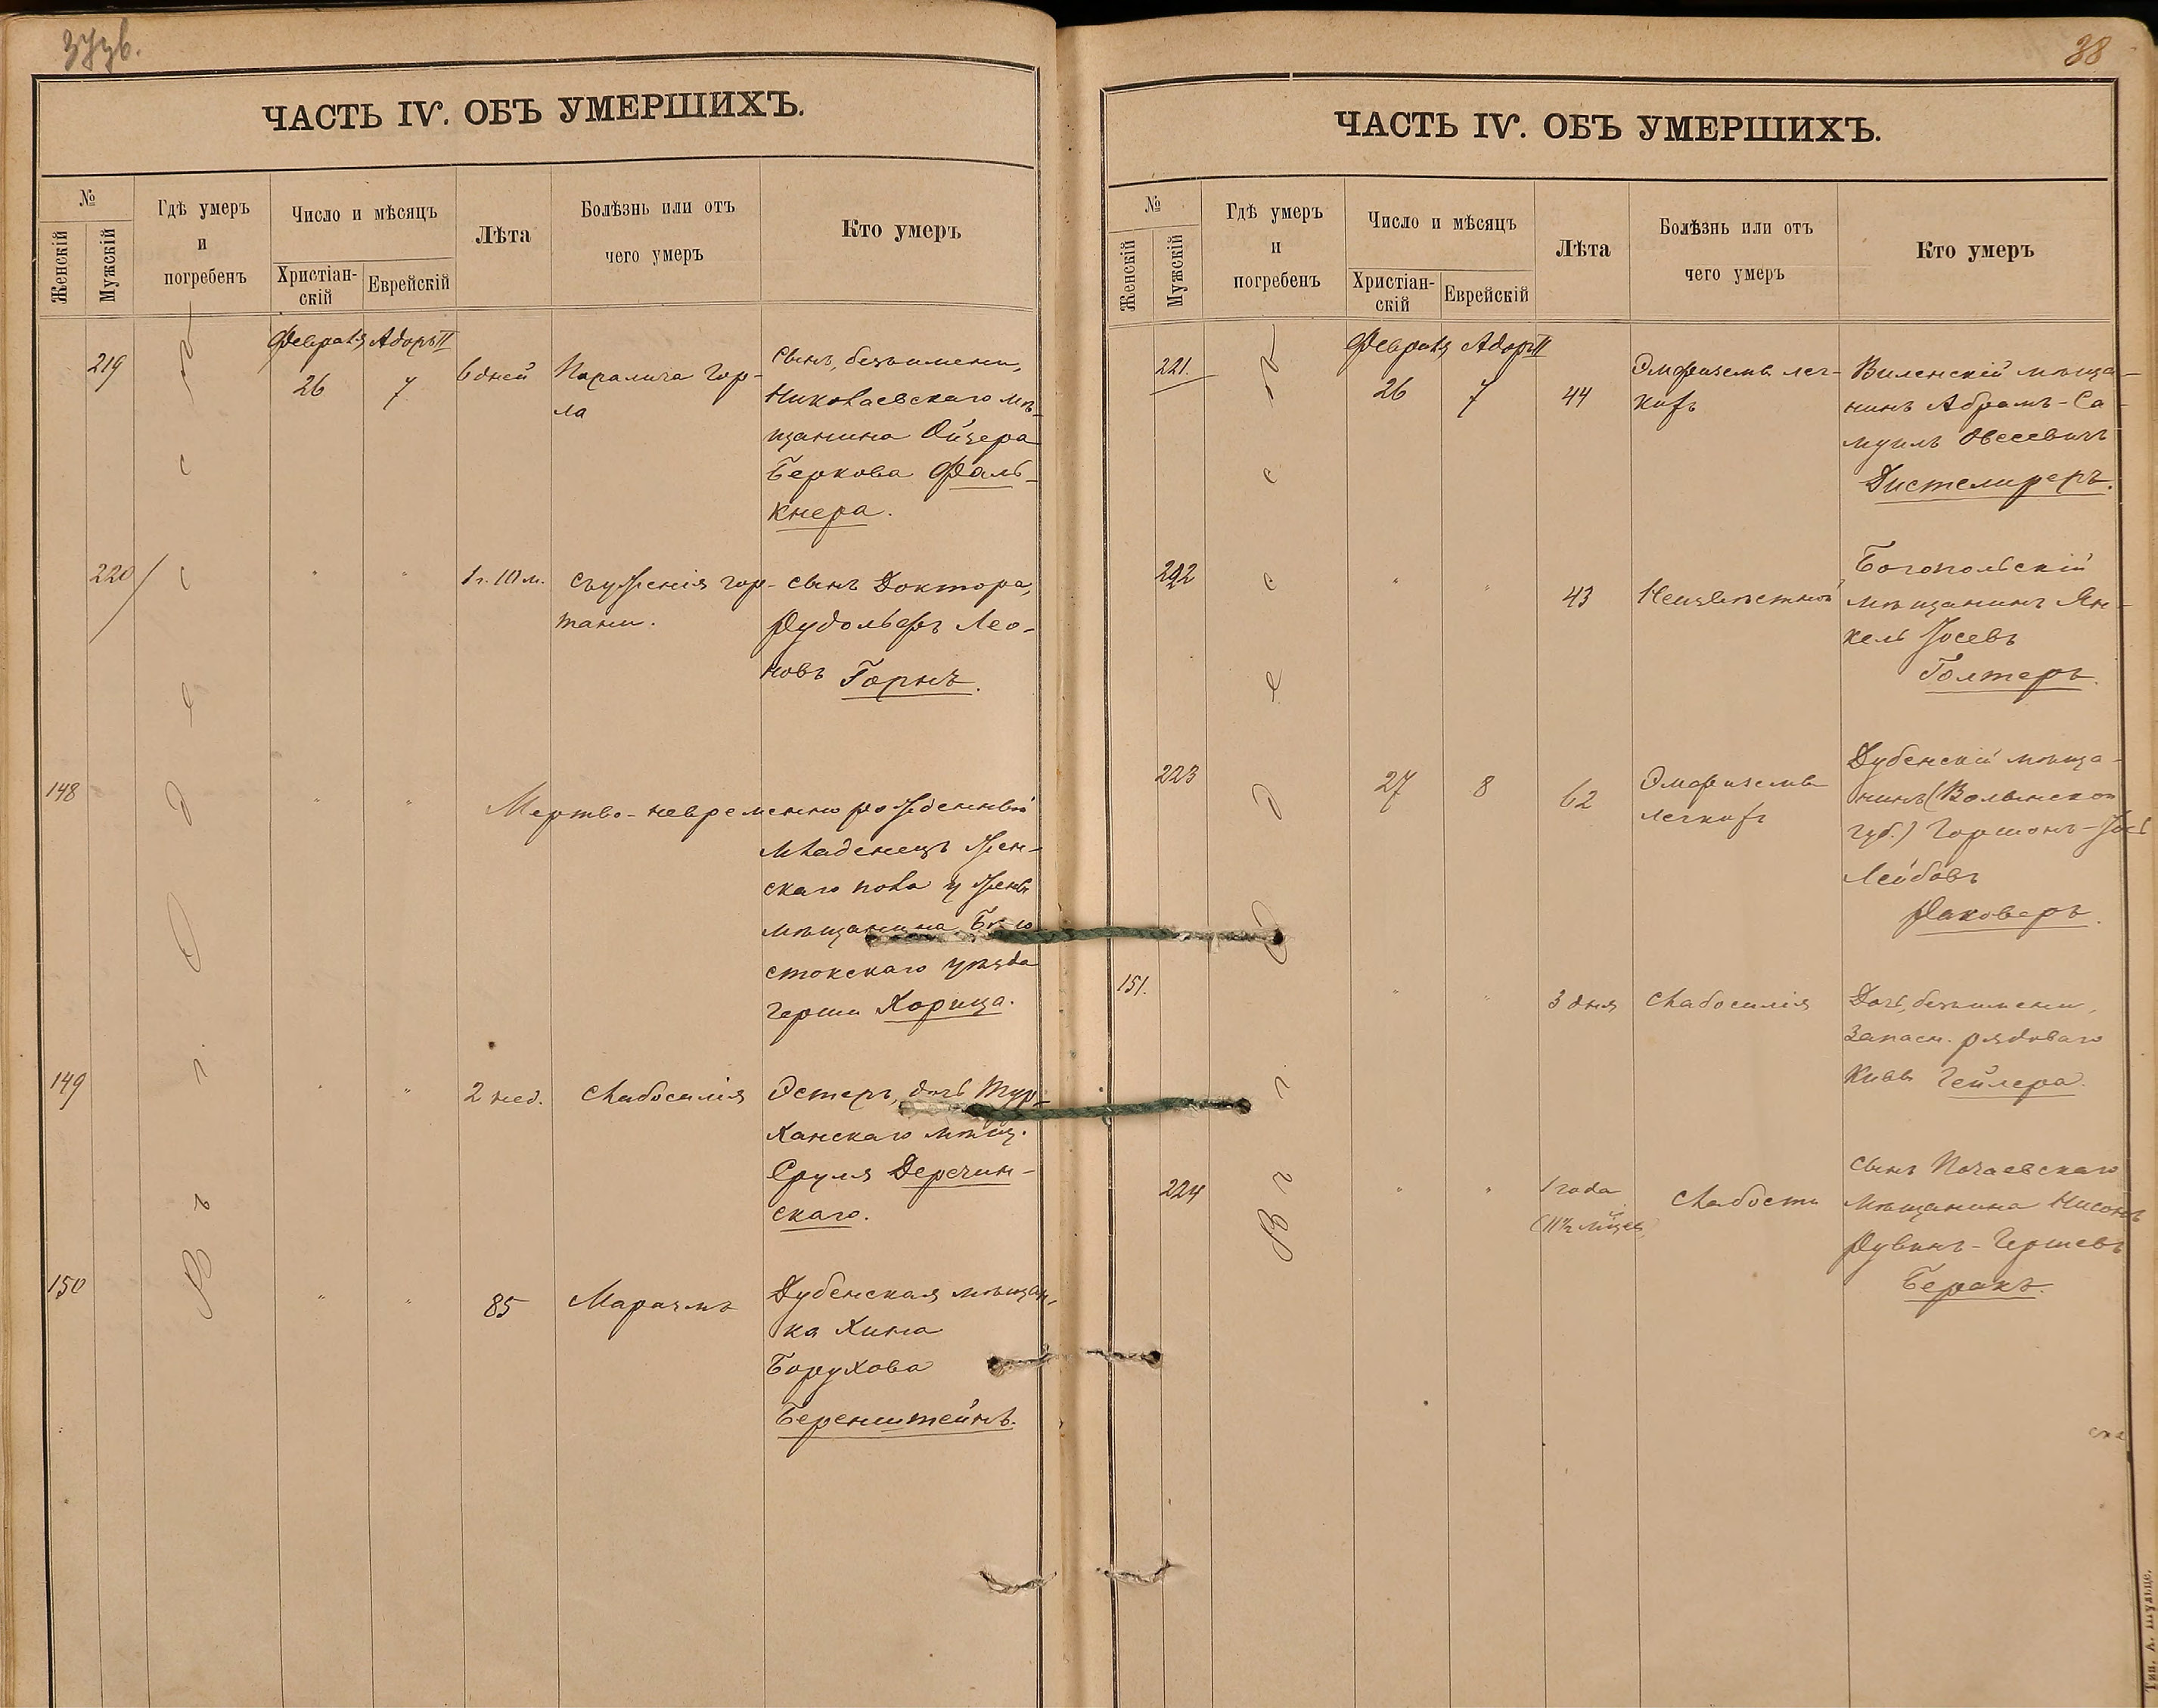 ЧАСТЬ IV. ОБЪ УМЕРШИХЪ.
№
Женскій
Мужскій
Гдѣ умеръ
и
погребенъ
Число и мѣсяцъ
Христіан-
скій
Еврейскій
Лѣта
Болѣзнь или отъ
чего умеръ
Кто умеръ
Въ г. Одессѣ
Февраля Адоръ II
219
26
7
6 дней
Паралича гор-
ла
Сынъ, безъ имени,
Николаевскаго мѣ-
щанина Ойзера
Беркова Фаль-
кнера.
220
"
"
1 г. 10 м.
Съуженія гор-
тани.
Сынъ Доктора,
Рудольфъ Лео-
новъ Горнъ.
148
"
"
Мертво-невременно рожденный
младенецъ жен-
скаго пола у жены
мѣщанина Бѣло-
стокскаго уѣзда
Герши Хорища.
149
"
"
2 нед.
Слабосилія
Эстеръ, дочь Тур-
ханскаго мѣщ.
Сруля Деречин-
скаго.
150
"
"
85
Маразмъ
Дубенская мѣщан-
ка Хина
Борухова
Беренштейнъ.
38
ЧАСТЬ IV. ОБЪ УМЕРШИХЪ.
№
Женскій
Мужскій
Гдѣ умеръ
и
погребенъ
Число и мѣсяцъ
Христіан-
скій
Еврейскій
Лѣта
Болѣзнь или отъ
чего умеръ
Кто умеръ
Въ г. Одессѣ
Февраля Адоръ II
221.
26
7
44
Эмфиземы лег-
кихъ
Виленскій мѣща-
нинъ Абрамъ-Са-
муилъ Овсеевичъ
Дистелиреръ.
222
"
"
43
Неизвѣстной
Богопольскій
мѣщанинъ Ян-
кель Іосевъ
Голтеръ.
223
27
8
62
Эмфиземы
легкихъ
Дубенскій мѣща-
нинъ (Волынской
губ.) Горшонъ-Іось
Лейбовъ
Раковеръ.
151.
"
"
3 дня
Слабосилія
Дочь, безъ имени,
запасн. рядоваго
Кивы Гейлера.
224
"
"
1 года
(11½ м-цев)
Слабости
Сынъ Почаевскаго
мѣщанина Нисонъ
Рувинъ-Гершевъ
Беракъ.
Тип. А. Шульце.